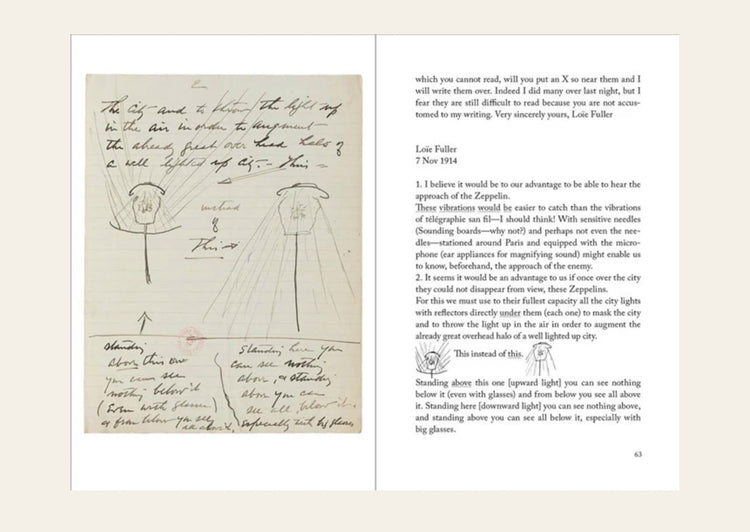 2
The city and to throw the light up
in the air in order to augment
the already great over head halo of
a well lighted up city. – Thus –
instead
of
This
standing
above this one
you can see
nothing below it
(Even with glasses)
or from below you see
all above it.
Standing here you
can see nothing
above, or standing
above you can
see all below it.
especially with big glasses
which you cannot read, will you put an X so near them and I
will write them over. Indeed I did many over last night, but I
fear they are still difficult to read because you are not accus-
tomed to my writing. Very sincerely yours, Loïe Fuller
Loïe Fuller
7 Nov 1914
1. I believe it would be to our advantage to be able to hear the
approach of the Zeppelin.
These vibrations would be easier to catch than the vibrations
of télégraphie san fil—I should think! With sensitive needles
(Sounding boards—why not?) and perhaps not even the nee-
dles—stationed around Paris and equipped with the micro-
phone (ear appliances for magnifying sound) might enable us
to know, beforehand, the approach of the enemy.
2. It seems it would be an advantage to us if once over the city
they could not disappear from view, these Zeppelins.
For this we must use to their fullest capacity all the city lights
with reflectors directly under them (each one) to mask the city
and to throw the light up in the air in order to augment the
already great overhead halo of a well lighted up city.
This instead of this.
Standing above this one [upward light] you can see nothing
below it (even with glasses) and from below you see all above
it. Standing here [downward light] you can see nothing above,
and standing above you can see all below it, especially with
big glasses.
63